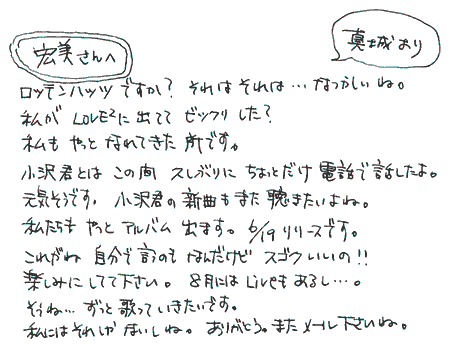 宏美さんへ
真城より
ロッテンハッツですか? それはそれは…なつかしいね。
私が LOVE²に出てて ビックリした?
私も やっと なれてきた所です。
小沢君とは この間 久しぶりに ちょっとだけ 電話で話したよ。
元気そうです。小沢君の新曲もまた聴きたいよね。
私たちも やっと アルバム 出ます。6/19リリースです。
これがね 自分で言うのも なんだけど スゴクいいの!!
楽しみにしてて下さい。8月にはLiveもあるし…。
そうね…ずっと歌っていきたいです。
私にはそれしかないしね。ありがとう。またメール下さいね。